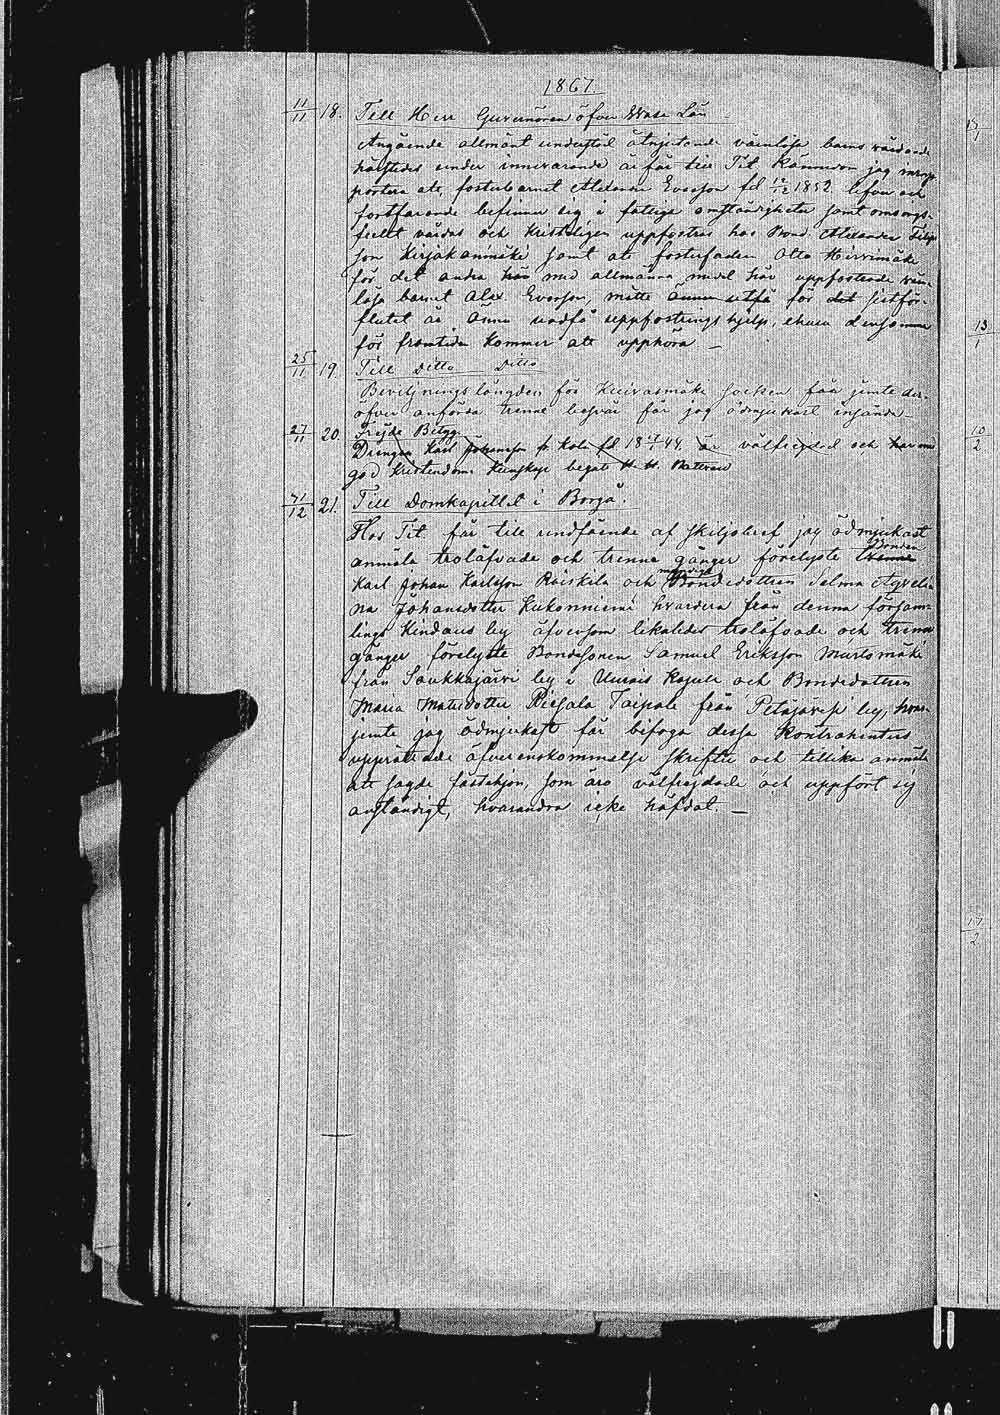 1867.
11/11 18. Till Herr Guvernören öfver Wasa Län
Angående allmänt understöd åtnjutande värnlösa barns vårdande
härstedes under innevarande år får till Tit. kännedom jag inrap-
portera att fosterbarnet Alexander Evasson fd 12/2 1852 lefver och
fortfarande befinner sig i fattiga omständigheter samt omsorgs-
fullt vårdas och kristeligen uppfostras hos Bond. Alexander Filips
son Kirjakanmäki samt att fosterfadren Otto Hirvimäki
för det andra med allmänna medel här uppfostrade värn-
lösa barnet Alex. Evasson, måtte ännu utfå för det sistför-
flutet år ännu undfå uppfostringshjelp, ehuru densamma
för framtiden kommer att upphöra —
25/11 19. Till Ditto Ditto
Bevillningslängden för Kuivasmäki Socken får jemte der-
öfver anförda trenne besvär får jag ödmjukast insända
27/11 20. Frejde Betyg.
Drengen Karl Johansson fr. Kola fd 18 44 är välfrejdad och har en
god Kristendoms kunskap begått H. H. Nattvard
21. Till Domkapitlet i Borgå.
Hos Tit. får till undfående af skiljobref jag ödmjukast
anmäla trolåfvade och trenne gånger förelyste Bonden
Karl Johan Karlsson Raiskila och Bondedottren Selma Aqveli-
na Johansdotter Kukonniemi hvardera från denna försam-
lings Kindaus by äfvensom likaledes trolåfvade och trenne
gånger förelyste Bondesonen Samuel Eriksson Murtomäki
från Soukkajärvi by i Uurais Kapell och Bondedottren
Maria Matsdotter Riesala Taipale från Petäjävesi by, hvar-
jemte jag ödmjukast får bifoga dessa Kontrahenters
upprättade öfverenskommelse skrifter och tillika anmäla
att sagde fästehjon, som äro välfrejdade och uppfört sig
anständigt, hvarandra icke häfdat. —
13/1
10/2
17/2